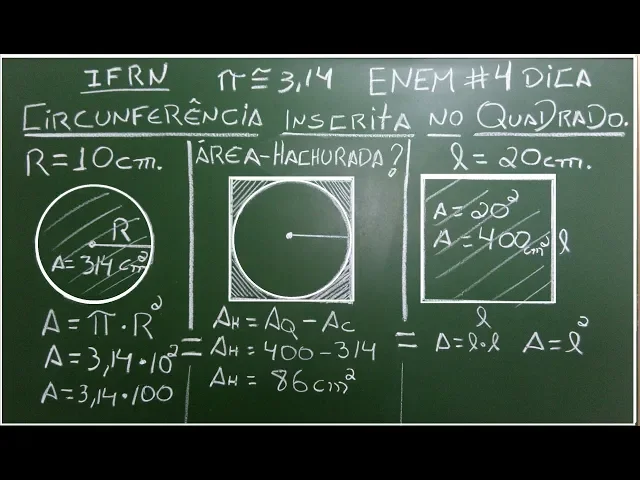 IFRN π ≅ 3,14 ENEM #4 DICA
CIRCUNFERÊNCIA INSCRITA NO QUADRADO.
R = 10cm.
R
A = 314 cm²
A = π · R²
A = 3,14 · 10²
A = 3,14 · 100
ÁREA-HACHURADA?
=
AH = AQ - AC
AH = 400 - 314
AH = 86cm²
=
l = 20cm.
A = 20²
A = 400cm²
l
l
A = l·l A = l²